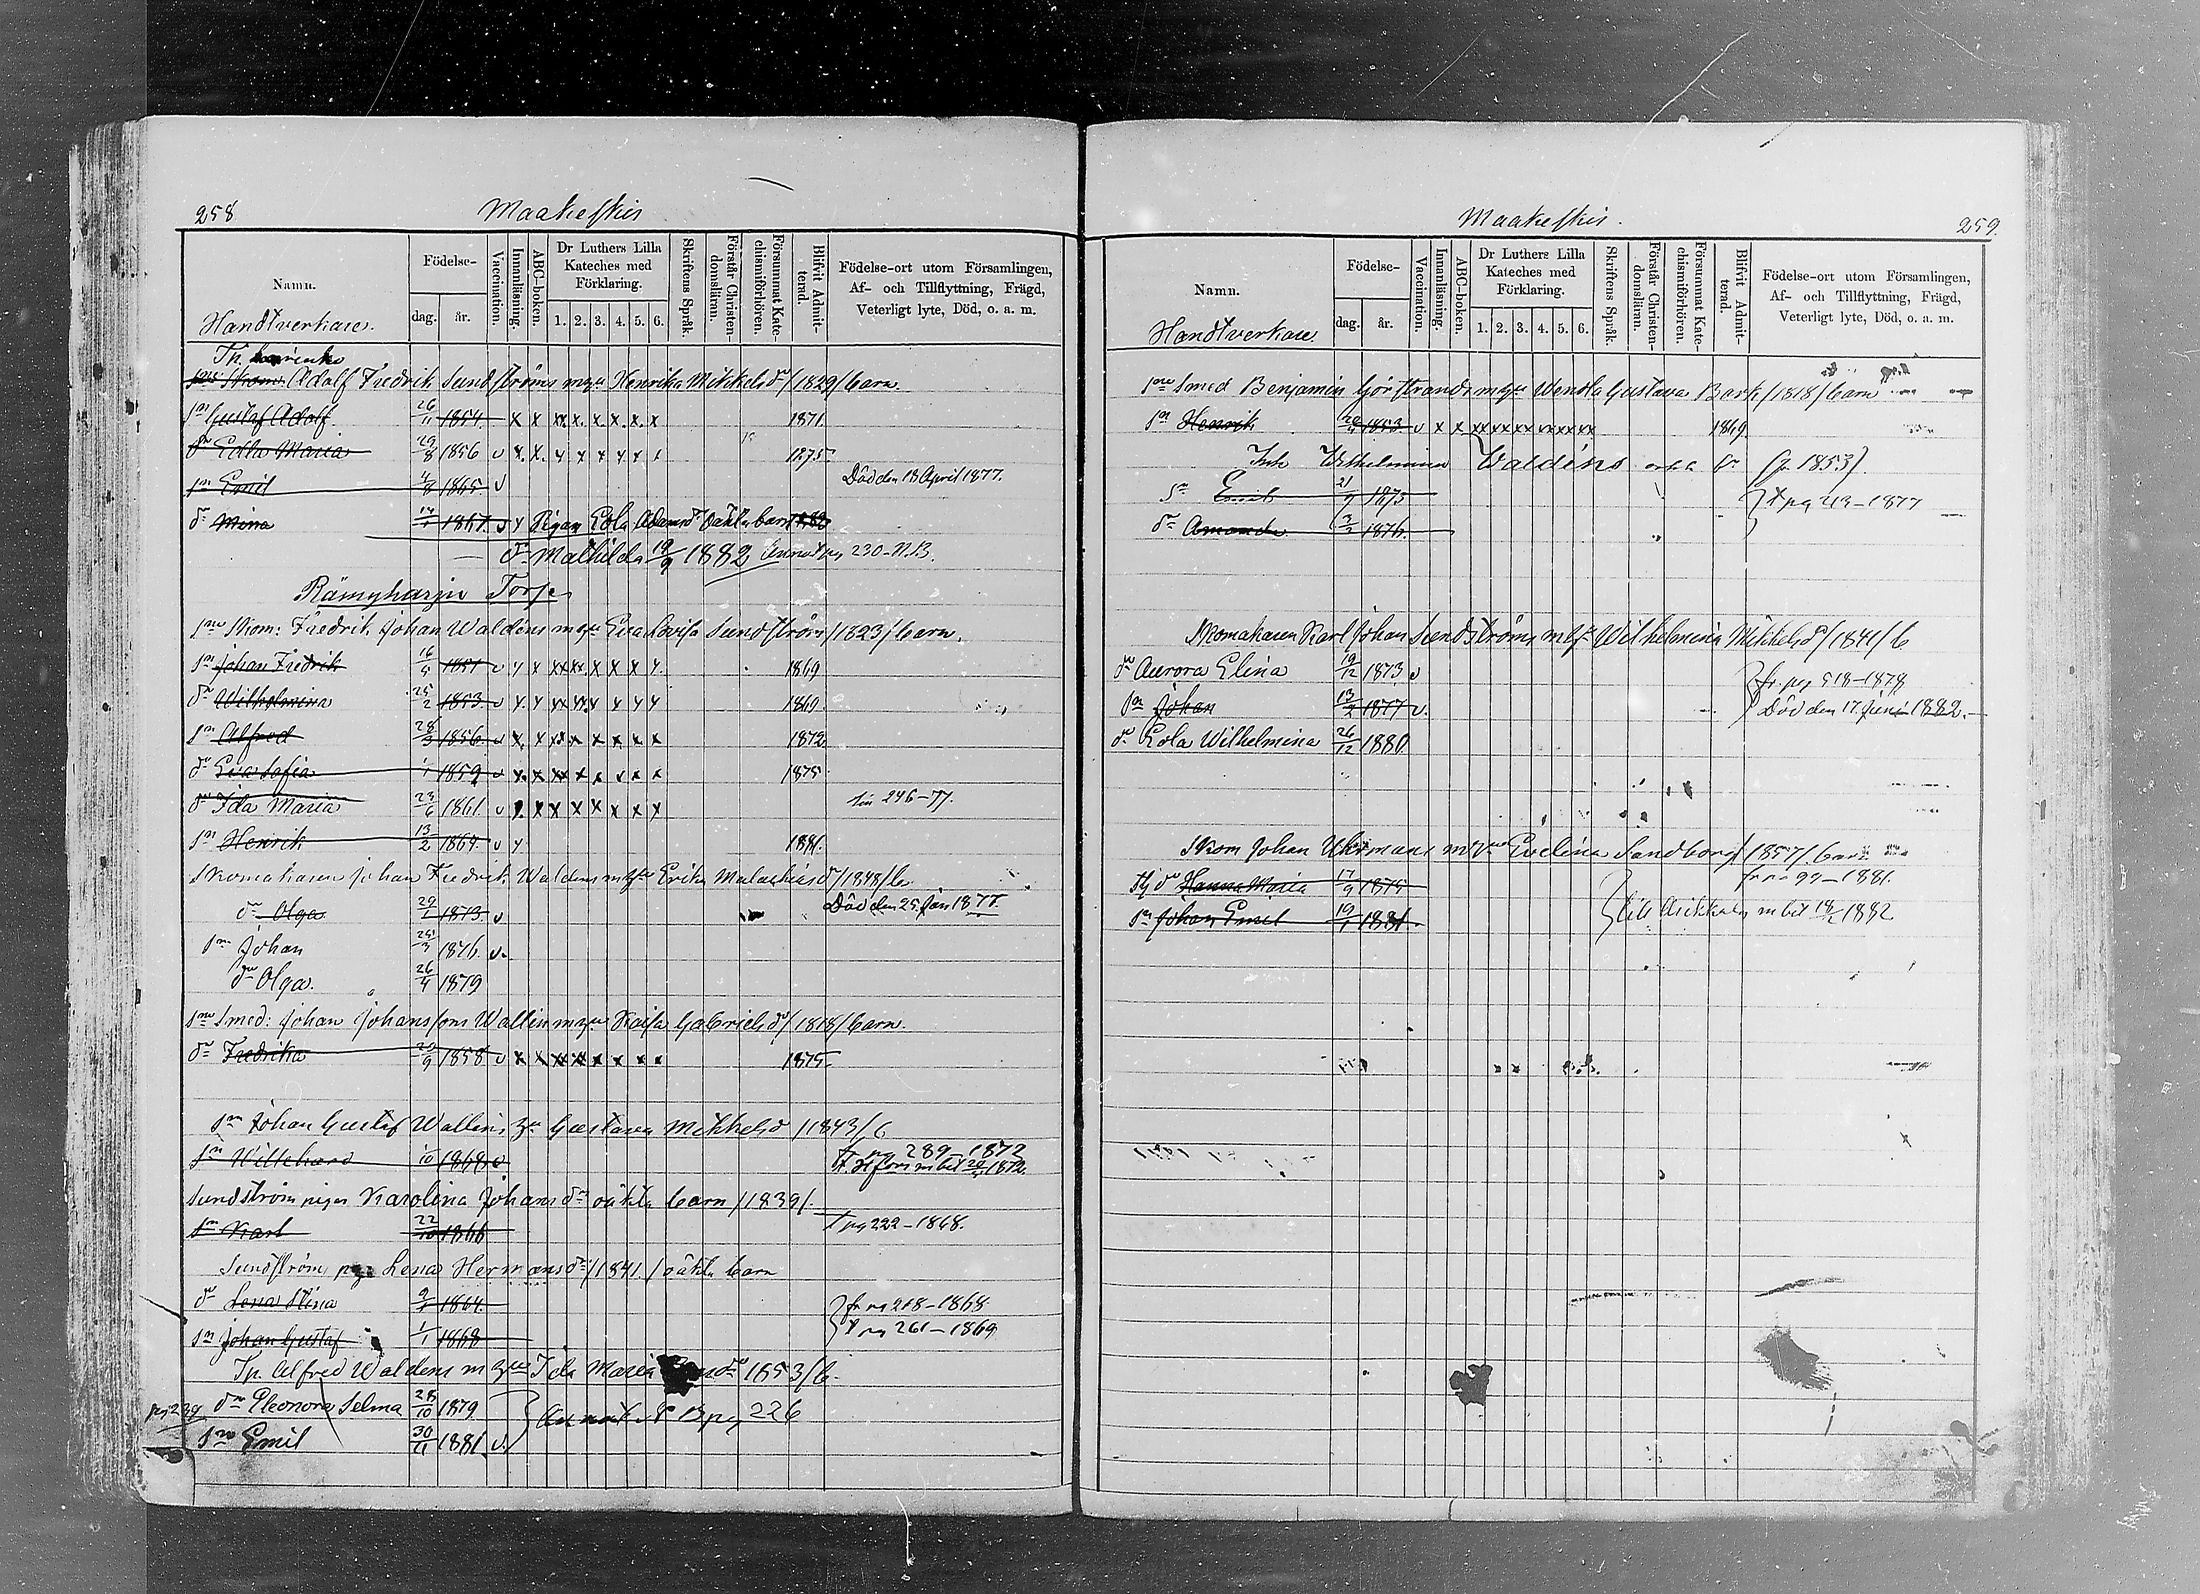 258
Maakeskis
Namn.
Födelse-
dag.
år.
Vaccination.
Innanläsning.
ABC-boken.
Dr Luthers Lilla
Kateches med
Förklaring.
1. 2. 3. 4. 5. 6.
Skriftens Språk.
Förstår Christen-
domsläran.
Försummat Kate-
chismiförhören.
Blifvit Admit-
terad.
Födelse-ort utom Församlingen,
Af- och Tillflyttning, Frägd,
Veterligt lyte, Död, o. a. m.
Handtverkare.
Adolf Fredrik Sundströms Henrika Mikkelsdr /1829/ barn
sn Gustaf Adolf 26/11 1854 x x xx x x x x x 1871
dr Edla Maria 29/8 1856 v x x x x x x x x 1875
sn Emil 4/8 1865 v Död den 18 April 1877.
dr Mina 1867 v x Pigan Eola oäkta barn
dr Mathilda 19/9 1882 pg 230 N.B.
Torp
Skom: Fredrik Johan Waldéns Eva Lovisa Sundström /1823/ barn.
sn Johan Fredrik 16/5 1851 v x x xx xx x x x x 1869
dr Wilhelmina 25/2 1853 v x x xx xx x x x x 1869
sn Alfred 28/3 1856 v x x xx x x x x x 1872
dr Eva Sofia 1/1 1859 v x x xx x x x x x 1875
dr Ida Maria 23/6 1861 v x x x x x x x x 246-77.
sn Henrik 13/2 1864 v x 1881.
Skomakaren Johan Fredrik Waldens Erika Malachiasdr /1848/ b.
dr Olga 29/1 1873 v Död den 25 Jan 1877
sn Johan 25/3 1876 v.
dr Olga. 26/4 1879
Smed: Johan Johanssons Wallin Kaisa Gabrielsdr /1818/ barn.
dr Fredrika 20/9 1858 v x x xx xx x x x x 1875
sn Johan Gustaf Wallins Gustava Mikkelsd /1843/ b
sn Willehard 1/10 1868 v pg 289-1872
Sundström pigan Karolina Johansdr oäkta barn /1839/.
sn Karl 22/10 1866 pg 222-1868.
Sundström, Lena Hermansdr /1841/ oäkta barn
dr Lena Stina 1864 fr pg 218-1868
sn Johan Gustaf 1/1 1868 pg 261-1869
Tp. Alfred Waldens Ida Maria 1853/ b.
pg 239 dr Eleonora Selma 28/10 1879 pg 226
sn Emil 30/11 1881 v.
Maakeskis.
259.
Namn.
Födelse-
dag.
år.
Vaccination.
Innanläsning.
ABC-boken.
Dr Luthers Lilla
Kateches med
Förklaring.
1. 2. 3. 4. 5. 6.
Skriftens Språk.
Förstår Christen-
domsläran.
Försummat Kate-
chismiförhören.
Blifvit Admit-
terad.
Födelse-ort utom Församlingen,
Af- och Tillflyttning, Frägd,
Veterligt lyte, Död, o. a. m.
Handtverkare.
Smed Benjamin Wendla Gustava Bark /1818/ barn
sn Henrik 1853 v x x xx xx xx xx xx xx 1869
Inh Wilhelmina Waldéns (f 1853).
sn Emil 21/9 1873 pg 43-1877
dr Amanda 1876.
Skomakaren Karl Johan Sundströms Wilhelmina Mikkelsdr /1841/ b
dr Aurora Elina 19/12 1873 v fr. pg 518-1878
sn Johan 13/2 1877 v. Död den 17 Juni 1882.
dr Eola Wilhelmina 26/12 1880.
Skom Johan Evelina Sandberg /1857/ barn
dr Hanna Maria 17/9 1875 99-1881.
sn Johan Emil 19/1 1881 till m bet 18/2 1882